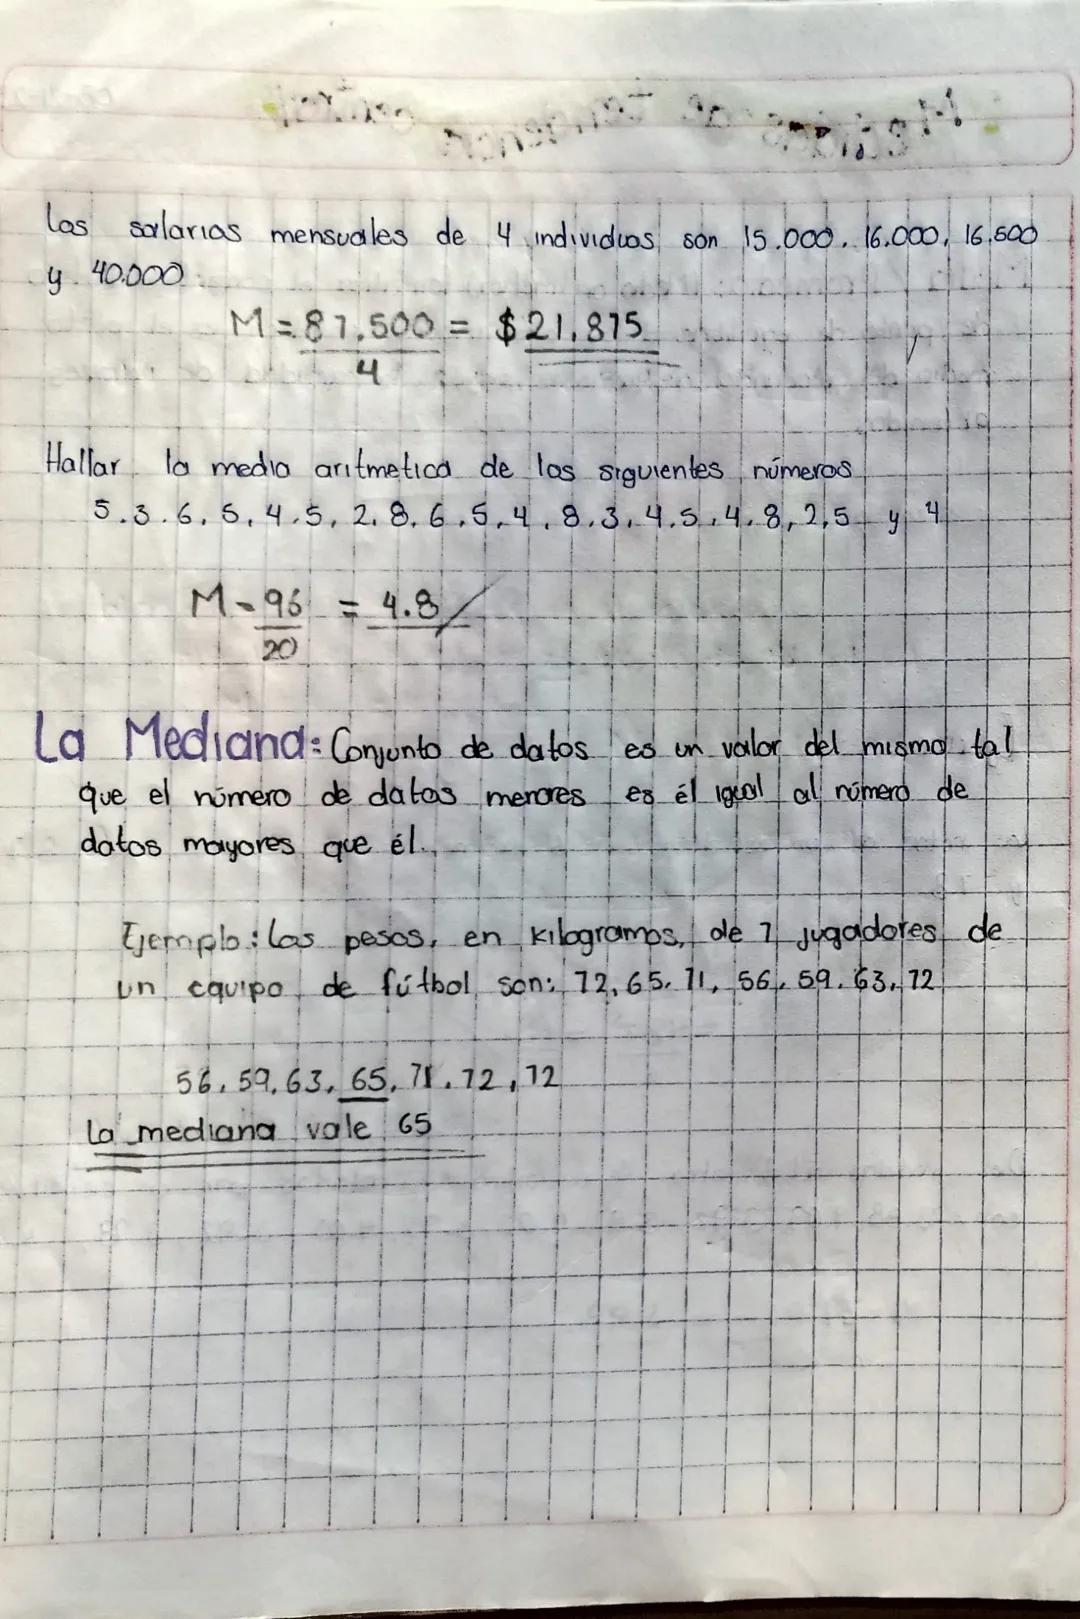 Los salarios mensuales de 4 individuos son 15.000. 16.000, 16.500
y 40.000
M = 87.500 = $21.875
4
Hallar la media aritmetica de los siguientes números
5.3.6,5,4.5,2,8,6,5,4,8.3,4.5,4.8,2,5 y 4
M = 96 = 4.8
20
La Mediana: Conjunto de datos es un valor del mismo tal
que el número de datos menores es él igual al número de
datos mayores que él.
Ejemplo: Los pesos, en kilogramos, de 7 jugadores de
un equipo de fútbol son: 72,65.71, 56, 59.63,72
56.59.63.65.71.72,72
La mediana vale 65